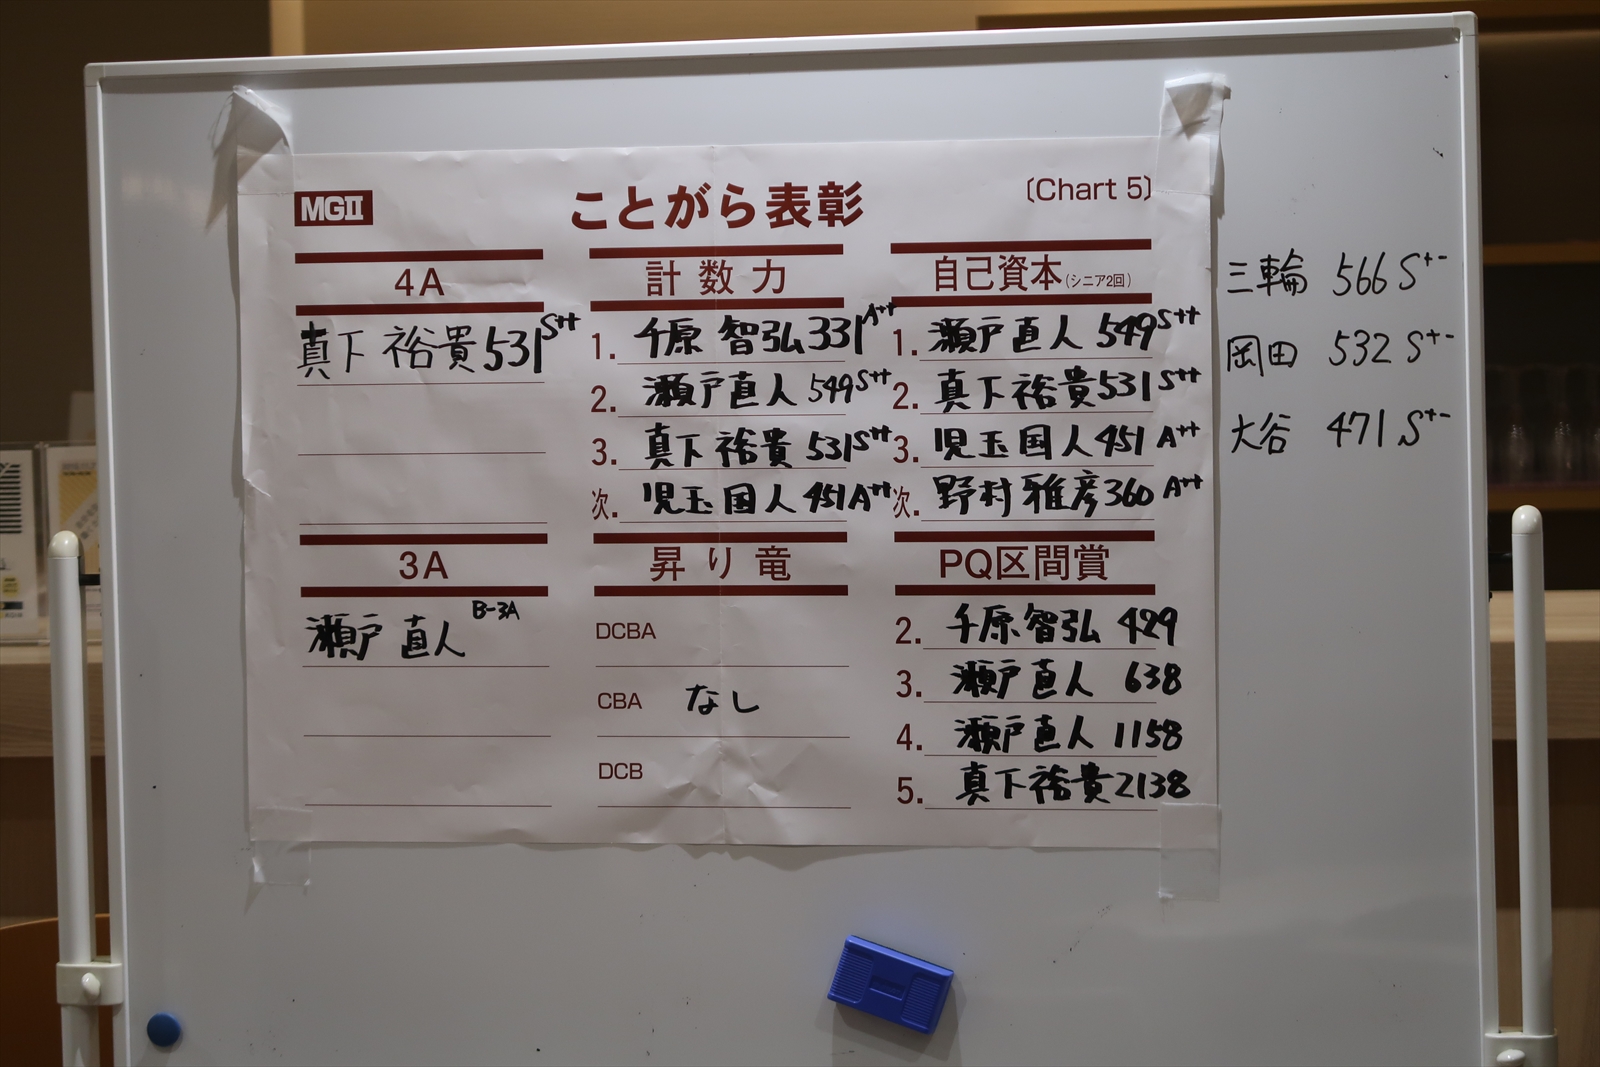 MGII
ことがら表彰
〔Chart 5〕
4A
真下 裕貴 531 S++
計数力
1. 千原 智弘 331 A++
2. 瀬戸直人 549 S++
3. 真下 裕貴 531 S++
次. 児玉国人 451 A++
自己資本(シニア2回)
1. 瀬戸直人 549 S++
2. 真下裕貴 531 S++
3. 児玉国人 451 A++
次. 野村雅彦 360 A++
3A
瀬戸 直人 B-3A
昇り竜
DCBA
CBA なし
DCB
PQ区間賞
2. 千原智弘 429
3. 瀬戸直人 638
4. 瀬戸直人 1158
5. 真下裕貴 2138
三輪 566 S+-
岡田 532 S+-
大谷 471 S+-